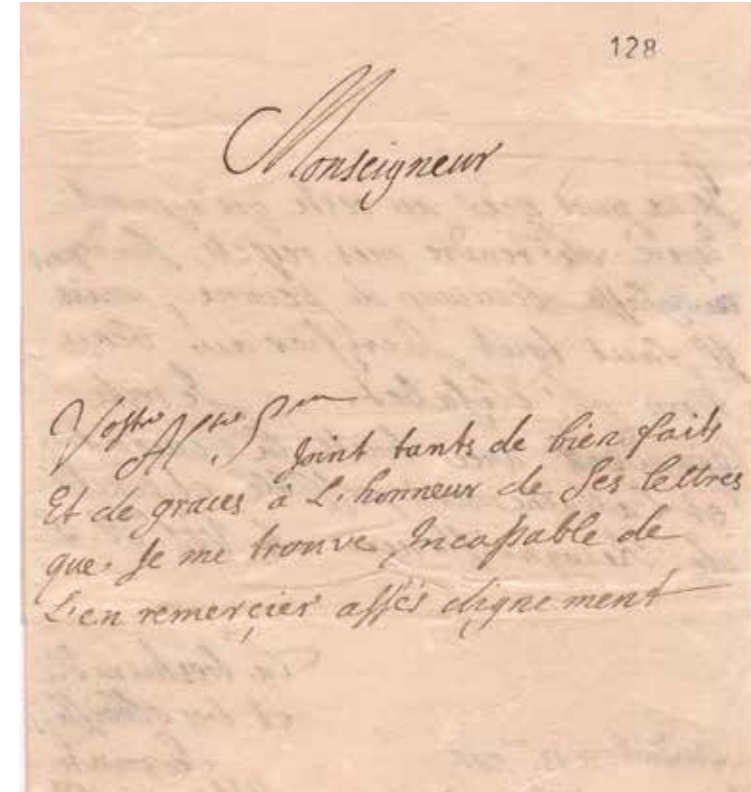 128
Monseigneur
Vostre Al^sse S^me
Joint tants de bien faits
Et de graces à L'honneur de Ses lettres
que Je me trouve Incapable de
L'en remerçier assés dignement